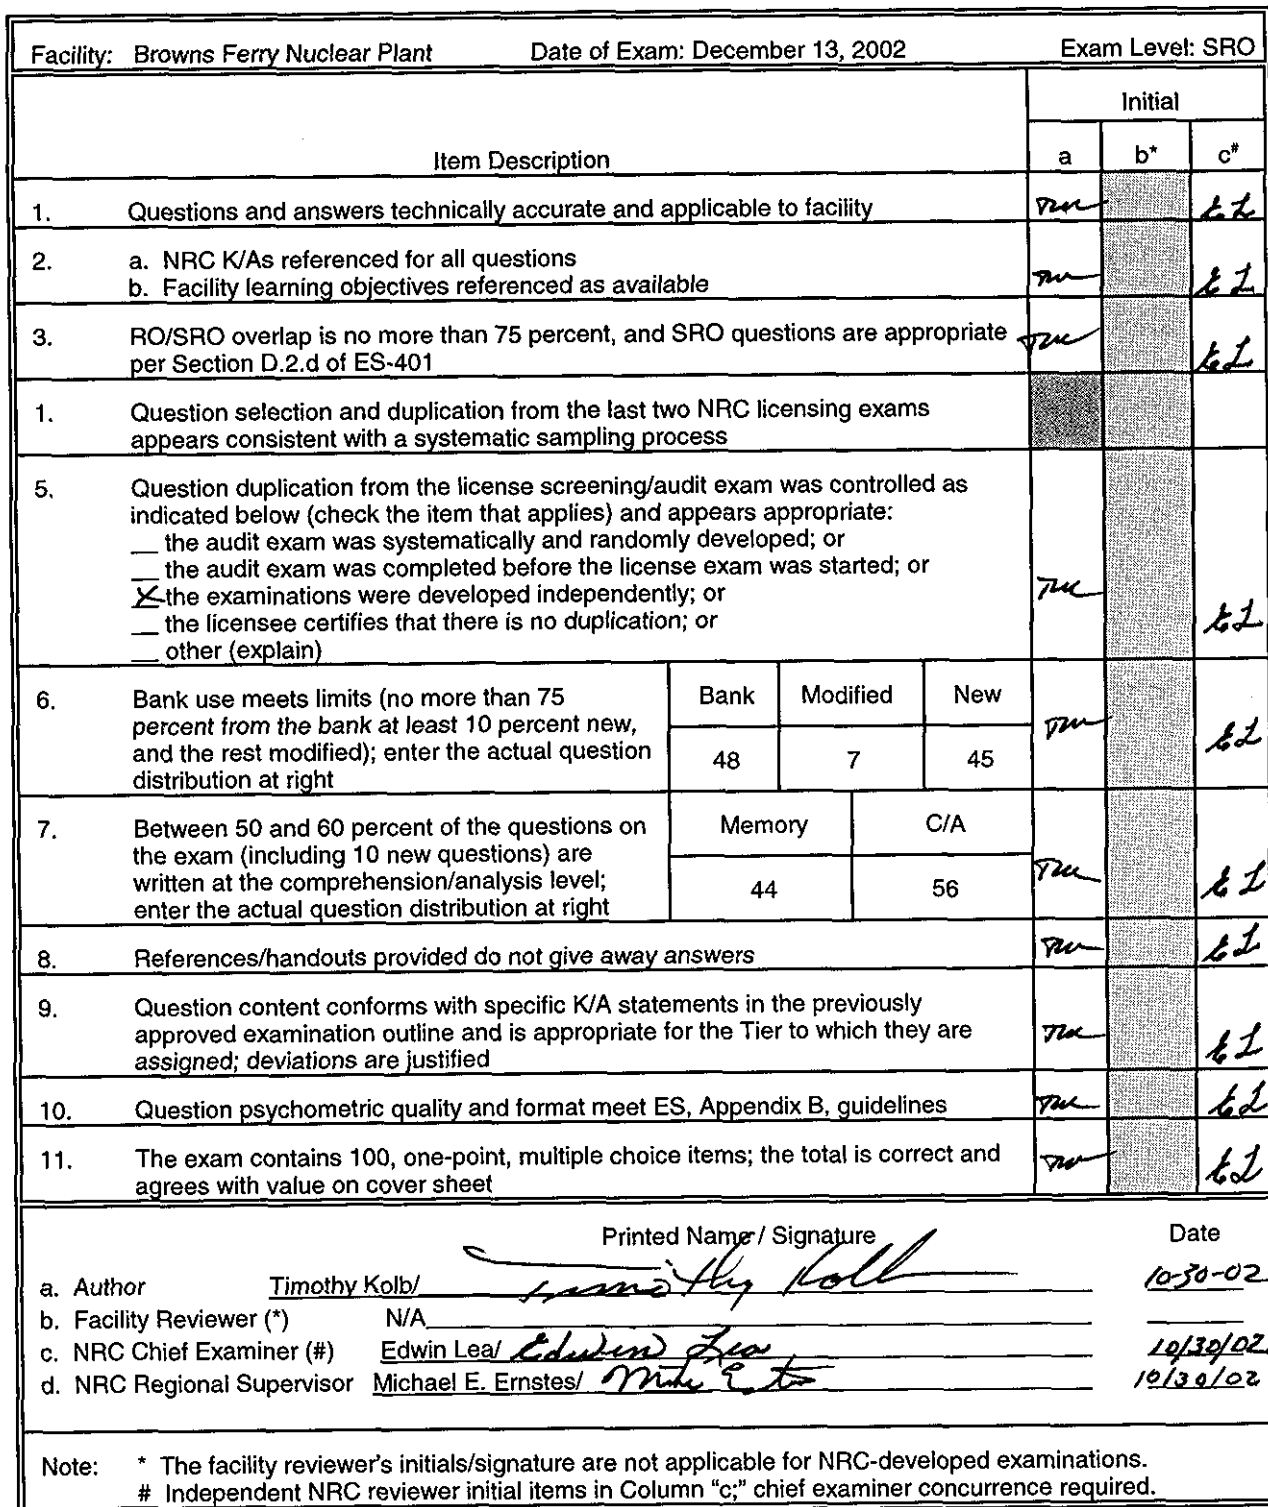 Facility: Browns Ferry Nuclear Plant Date of Exam: December 13, 2002 Exam Level: SRO
Initial
Item Description a b* c#
1. Questions and answers technically accurate and applicable to facility EL
2. a. NRC K/As referenced for all questions
b. Facility learning objectives referenced as available EL
3. RO/SRO overlap is no more than 75 percent, and SRO questions are appropriate
per Section D.2.d of ES-401 EL
1. Question selection and duplication from the last two NRC licensing exams
appears consistent with a systematic sampling process
5. Question duplication from the license screening/audit exam was controlled as
indicated below (check the item that applies) and appears appropriate:
__ the audit exam was systematically and randomly developed; or
__ the audit exam was completed before the license exam was started; or
X the examinations were developed independently; or
__ the licensee certifies that there is no duplication; or
__ other (explain) EL
6. Bank use meets limits (no more than 75
percent from the bank at least 10 percent new,
and the rest modified); enter the actual question
distribution at right
Bank Modified New
48 7 45 EL
7. Between 50 and 60 percent of the questions on
the exam (including 10 new questions) are
written at the comprehension/analysis level;
enter the actual question distribution at right
Memory C/A
44 56 EL
8. References/handouts provided do not give away answers EL
9. Question content conforms with specific K/A statements in the previously
approved examination outline and is appropriate for the Tier to which they are
assigned; deviations are justified EL
10. Question psychometric quality and format meet ES, Appendix B, guidelines EL
11. The exam contains 100, one-point, multiple choice items; the total is correct and
agrees with value on cover sheet EL
Printed Name / Signature Date
a. Author Timothy Kolb/ Timothy Kolb 10-30-02
b. Facility Reviewer (*) N/A
c. NRC Chief Examiner (#) Edwin Lea/ Edwin Lea 10/30/02
d. NRC Regional Supervisor Michael E. Ernstes/ 10/30/02
Note: * The facility reviewer's initials/signature are not applicable for NRC-developed examinations.
# Independent NRC reviewer initial items in Column "c;" chief examiner concurrence required.